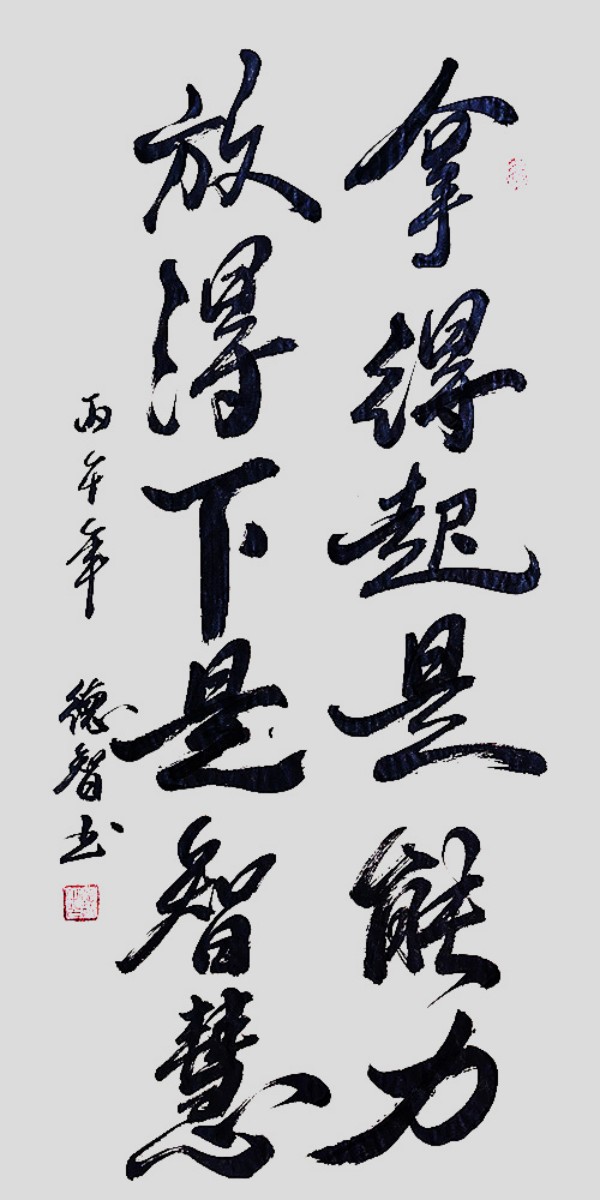 拿得起是能力
放得下是智慧
丙午年 德智书